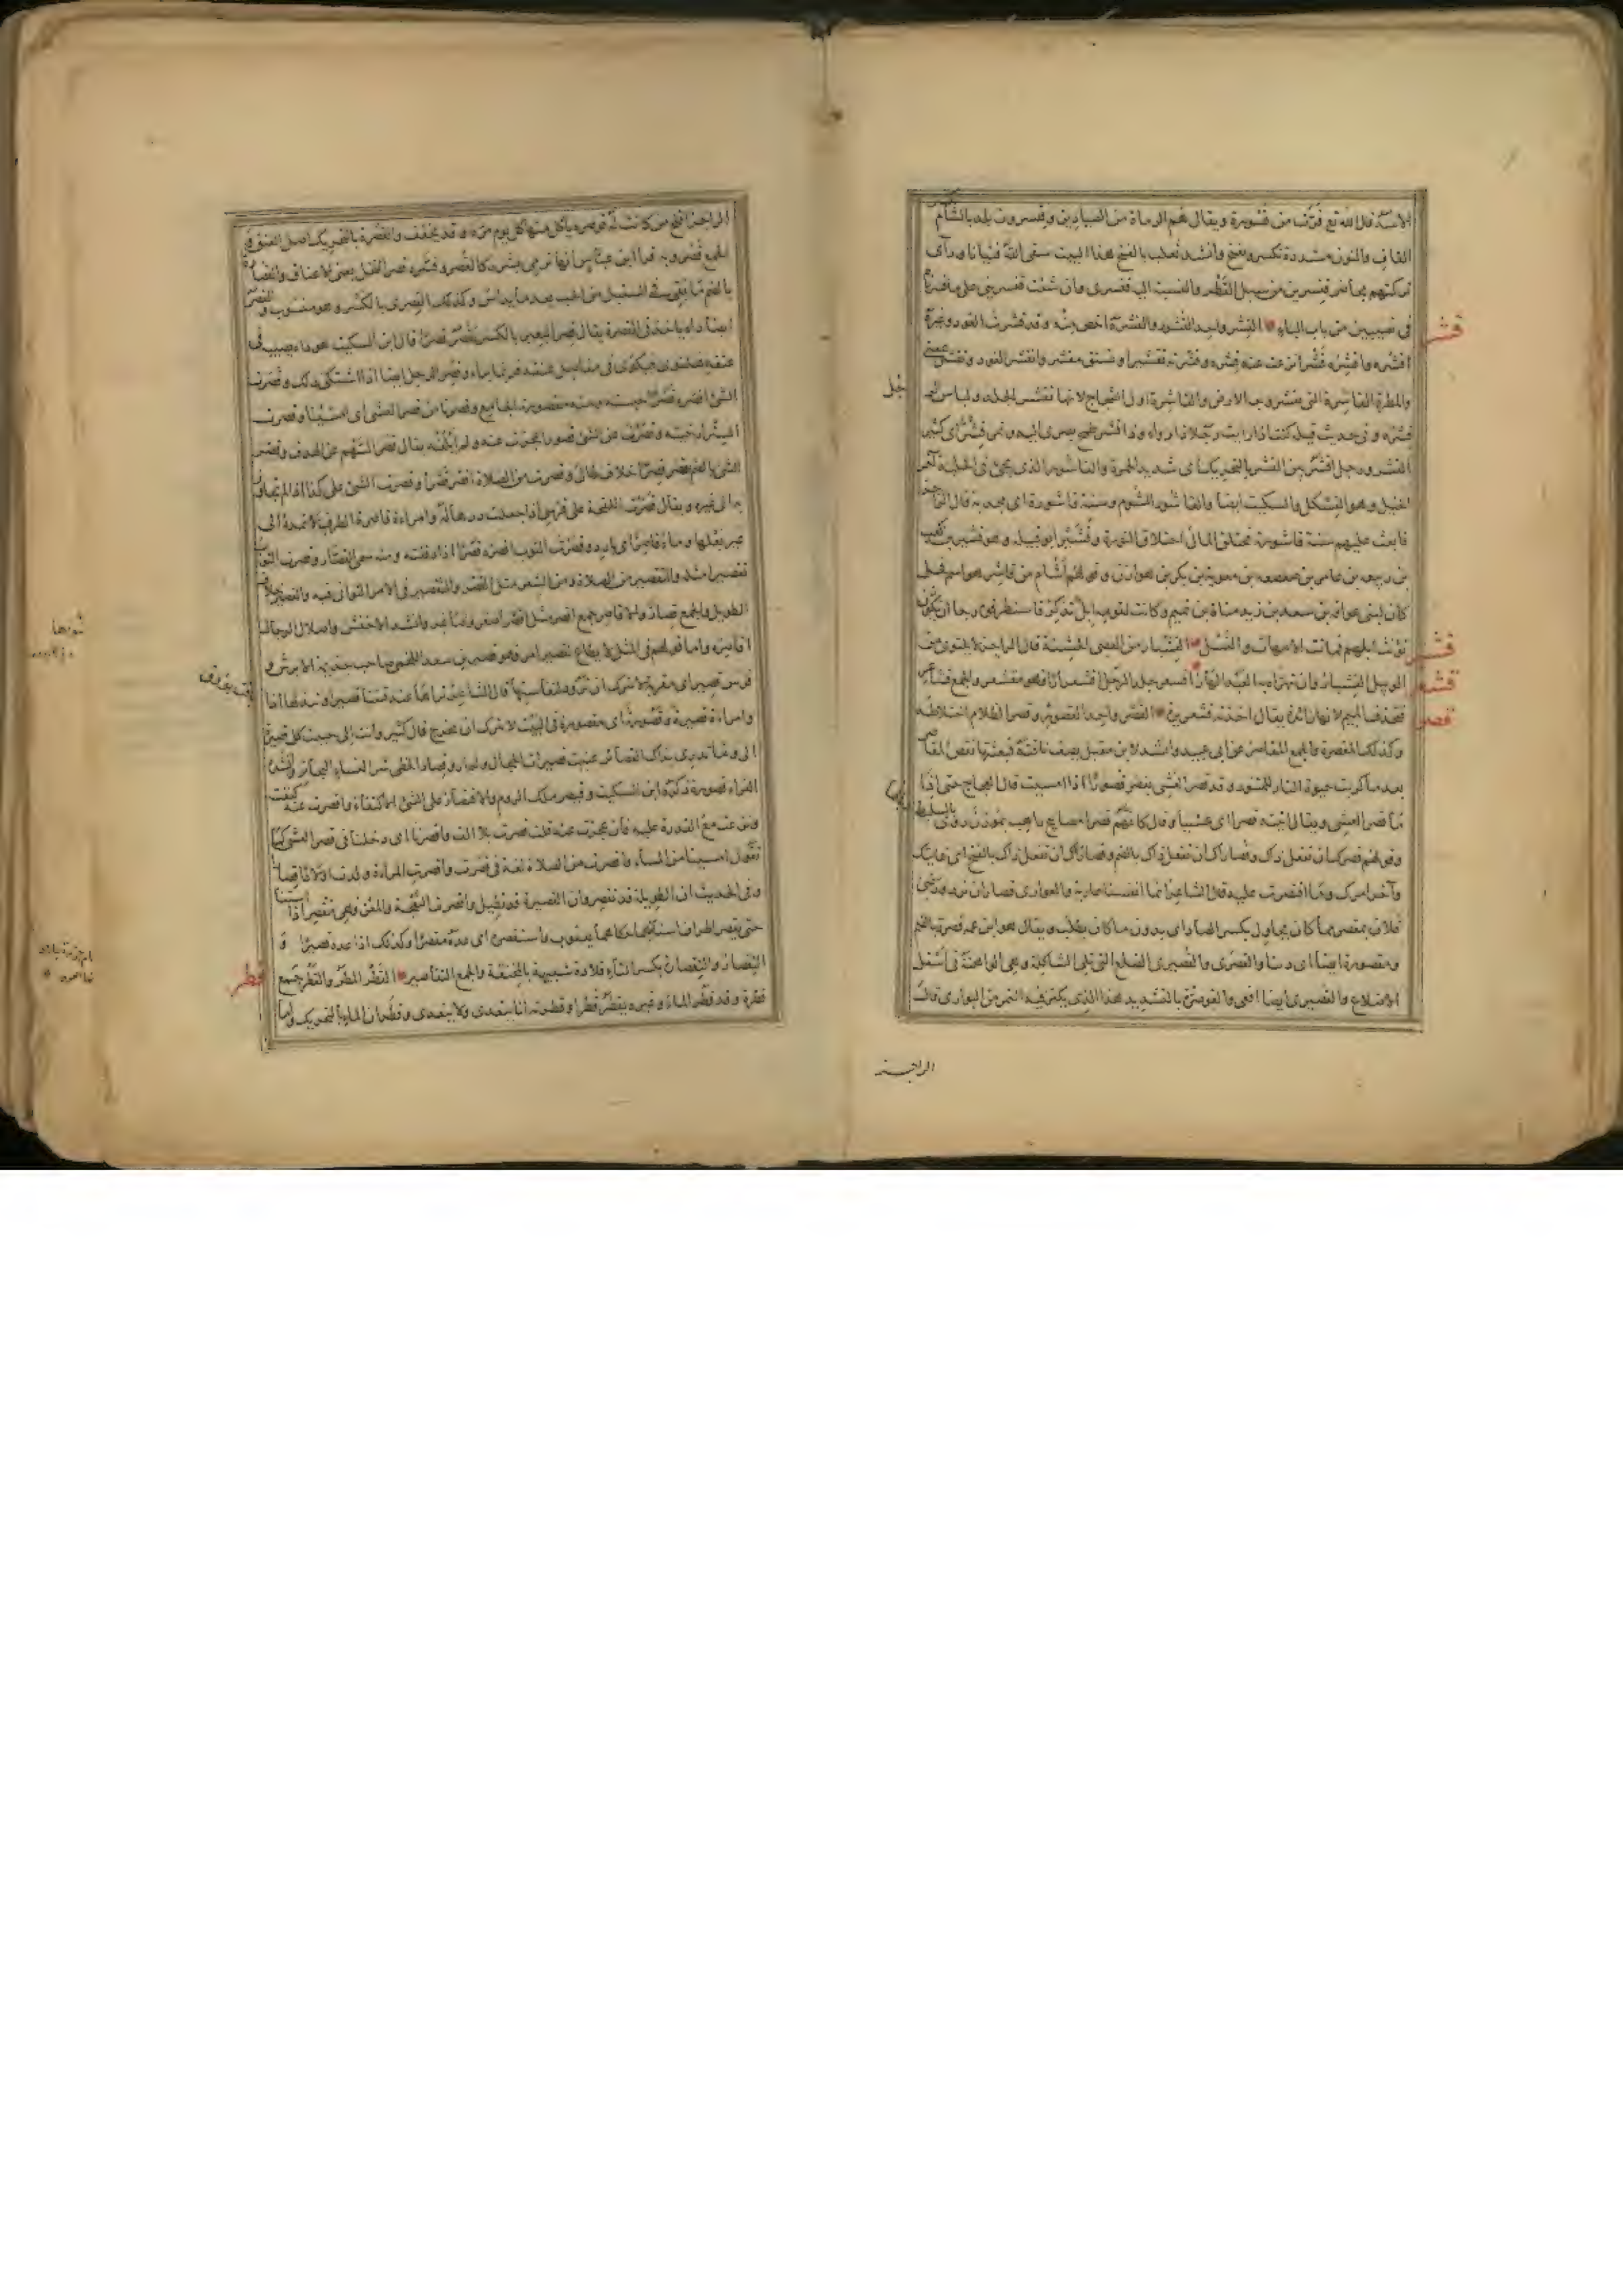 الاسد قال الله تع فرت من قسورة ويقال هم الرماة من الصيادين وقنسرون بلد بالشأم
القاف والنون مشددة تكسر وتفتح وانشد ثعلب بالفتح هذا البيت سقى الله فتيانا ورآى
تركتهم بحاضر قنسرين من سبل القطر والنسبة اليه قنسرى وان شئت قنسرينى على ما فسرناه
فى نصيبين من باب الباء القشر واحد القشور والقشرة اخص منه وقد قشرت العود وغيره
قشر
اقشره واقشره قشرا نزعت عنه قشره وقشرته تقشيرا وفستق مقشر وانقشر العود وتقشر بمعنى
والمطرة القاشرة التى تقشر وجه الارض والقاشرة اول الشجاج لانها تقشر الجلد ولباس الرجل
قشره وفى حديث قيلة كنت اذا رايت رجلا ذا رواء وذا قشر طمح بصرى اليه وتمر قشر اى كثير
القشر ورجل اقشر بين القشر بالتحريك اى شديد الحمرة والقاشور الذى يجئ فى الحلبة آخر
الخيل وهو الفسكل والسكيت ايضا والقاشور المشوم وسنة قاشورة اى مجدبة قال الراجز
فابعث عليهم سنة قاشورة تحتلق المال احتلاق النورة وقشير ابو قبيلة وهو قشير بن كعب
بن ربيعة بن عامر بن صعصعة بن معوية بن بكر بن هوازن وقولهم اشأم من قاشر هو اسم فحل
كان لبنى عوافة بن سعد بن زيد مناة بن تميم وكانت لقومه ابل تذكر فاستطرقوه رجا ان يكون
تؤنث ابلهم فماتت الامهات والنسل القشبار من العصى الخشنة قال الراجز لا يلتوى من
الوبيل القشبار وان تهراه بها العبد الهار اقشعر جلد الرجل اقشعرارا فهو مقشعر والجمع قشاعر
فتحذف الميم لانها زائدة يقال اخذته قشعريرة القصر واحد القصور وقصر الظلام اختلاطه
قصر
وكذلك المقصرة والجمع المقاصر عن ابى عبيد وانشد لابن مقبل يصف ناقته فبعثتها تقص المقاصر
بعد ما كربت حيوة النار للمتنور وقد قصر العشى يقصر قصورا اذا امسيت قال العجاج حتى اذا
ما قصر العشى ويقال اتيته قصرا اى عشيا وقال كانهم قصرا مصابيح راهب بموزن روى بالسليط
وقولهم قصرك ان تفعل ذاك وقصارك ان تفعل ذاك بالضم وقصاراك ان تفعل ذاك بالفتح اى غايتك
وآخر امرك وما اقتصرت عليه قال الشاعر انما انفسنا عارية والعوارى قصار ان ترد ورضى
فلان بمقصر مما كان يحاول بكسر الصاد اى بدون ما كان يطلب ويقال هو ابن عمه قصرة بالضم
ومقصورة ايضا اى دنيا والقصرى والقصيرى الضلع التى تلى الشاكلة وهى الواهنة فى اسفل
الاضلاع والقصيرى ايضا افعى والقوصرة بالتشديد هذا الذى يكنز فيه التمر من البوارى قال
الراجز
الراجز افلح من كانت له قوصره ياكل منها كل يوم مره وقد يخفف والقصرة بالتحريك اصل العنق
الجمع قصر وبه قرا ابن عباس انها ترمى بشرر كالقصر وفسره قصر النخل يعنى الاعناق
بالضم ما يبقى فى السنبل من الحب بعد ما يداس وكذلك القصرى بالكسر وهو منسوب والقصر
ايضا داء ياخذ فى القصرة يقال قصر البعير بالكسر يقصر قصرا قال ابن السكيت هو داء يصيبه فى
عنقه فيلتوى فيكوى فى مفاصل عنقه فربما براء وقصر الرجل ايضا اذا اشتكى ذلك وقصرت
الشئ اقصره قصرا حبسته ومنه مقصورة الجامع وقصرنا من قصر العشى اى امسينا وقصرت
الستر ارخيته وقصرت عن الشئ قصورا عجزت عنه ولم ابلغه يقال قصر السهم عن الهدف وقصر
الشئ بالضم يقصر قصرا خلاف طال وقصرت من الصلاة اقصر قصرا وقصرت الشئ على كذا اذا لم تجاوز
به الى غيره ويقال قصرت اللقحة على فرسى اذا جعلت درها له وامراءة قاصرة الطرف لا تمده الى
غير بعلها وماء قاصر اى بارد وقصرت الثوب اقصره قصرا اذا دققته ومنه سمى القصار وقصرت الثوب
تقصيرا مثله والتقصير من الصلاة ومن الشعر مثل القصر والتقصير فى الامر التوانى فيه والقصير خلاف
الطويل والجمع قصار والاقاصر جمع اقصر مثل اصغر واصاغر وانشد الاخفش واصلال الرجال
اقاصره واما قولهم فى المثل لا يطاع لقصير امر فهو قصير بن سعد اللخمى صاحب جذيمة الابرش و
فرس قصير اى مقربة لا تترك ان ترود لنفاستها قال الشاعر تراها عند قبتنا قصيرا ونبذلها اذا
باقت بؤوق
وامراءة قصيرة وقصورة اى مقصورة فى البيت لا تترك ان تخرج قال كثير وانت التى حببت كل قصيرة
الى وما تدرى بذاك القصائر عنيت قصيرات الحجال ولم ارد قصار الخطى شر النساء البحاتر وانشد
الفراء قصورة ذكره ابن السكيت وقيصر ملك الروم والاقتصار على الشئ الاكتفاء واقصرت عنه كففت
ونزعت مع القدرة عليه فان عجزت عنه قلت قصرت بلا الف واقصرنا اى دخلنا فى قصر العشى كما
تقول امسينا من المساء واقصرت من الصلاة لغة فى قصرت واقصرت المراءة ولدت ولادا قصارا
وفى الحديث ان الطويلة قد تقصر وان القصيرة قد تطيل واقصرت النعجة والمعز فهى مقصر اذا اسنتا
حتى تقصر اطراف اسنانهما حكاهما يعقوب واستقصره اى عده مقصرا وكذلك اذا عده قصيرا و
التقصار والتقصارة بكسر التاء قلادة شبيهة بالمخنقة والجمع التقاصير القطر المطر والقطر جمع
قطر
قطرة وقد قطر الماء وغيره يقطر قطرا وقطرته انا يتعدى ولا يتعدى وقطران الماء بالتحريك واما